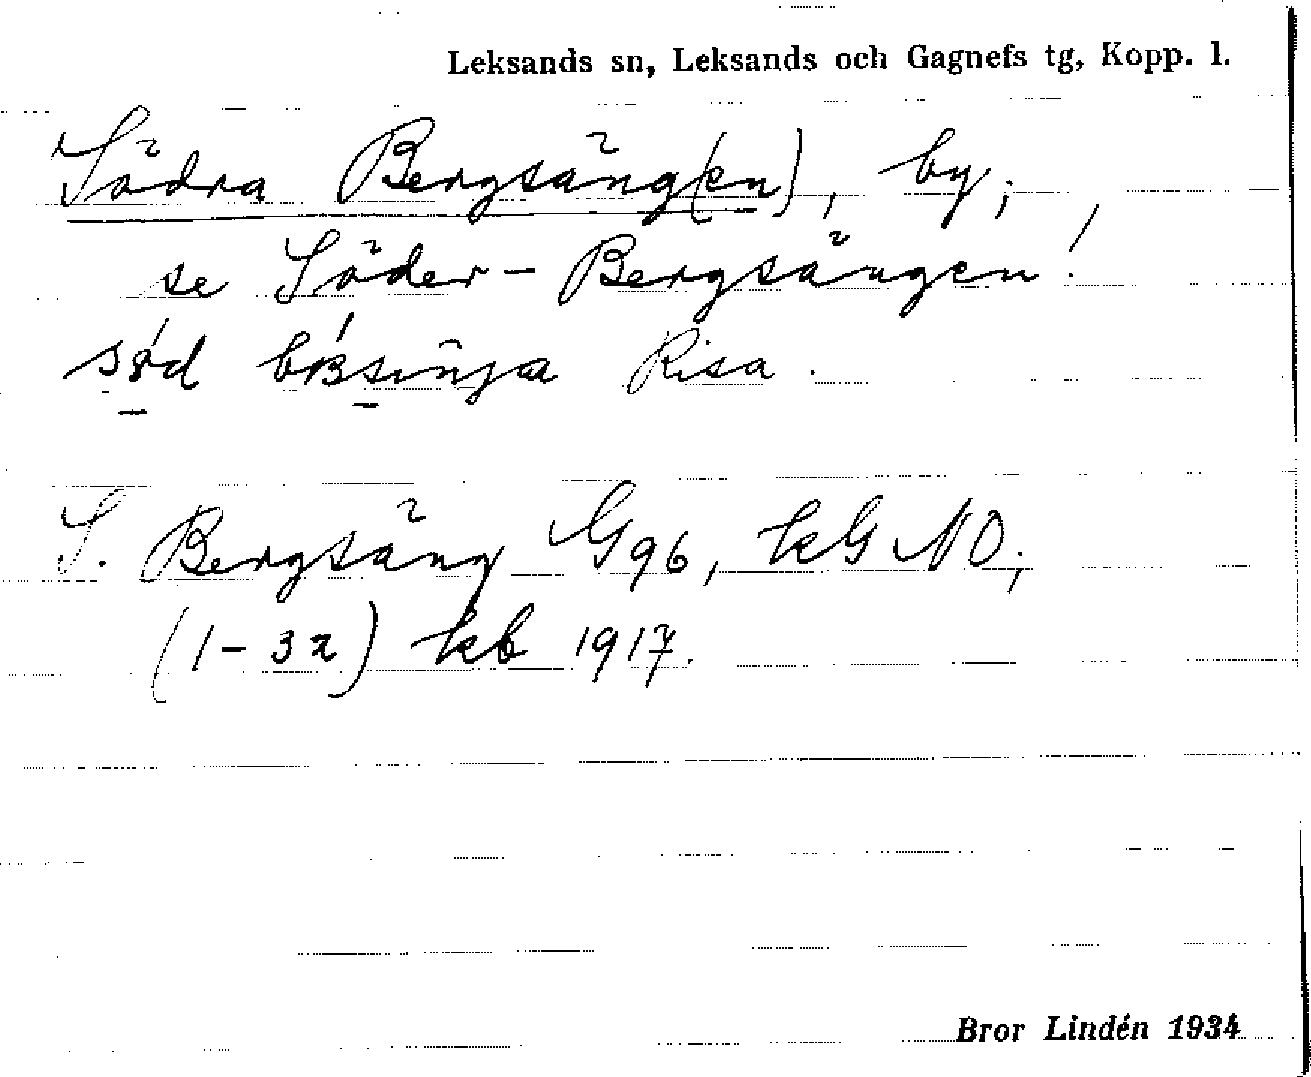 Leksands sn, Leksands och Gagnefs tg, Kopp. l.
Södra Bergsäng(en), by;
se Söder-Bergsängen!
Risa.
S. Bergsäng G96, kG NO;
(1-32) kb 1917.
Bror Lindén 1934